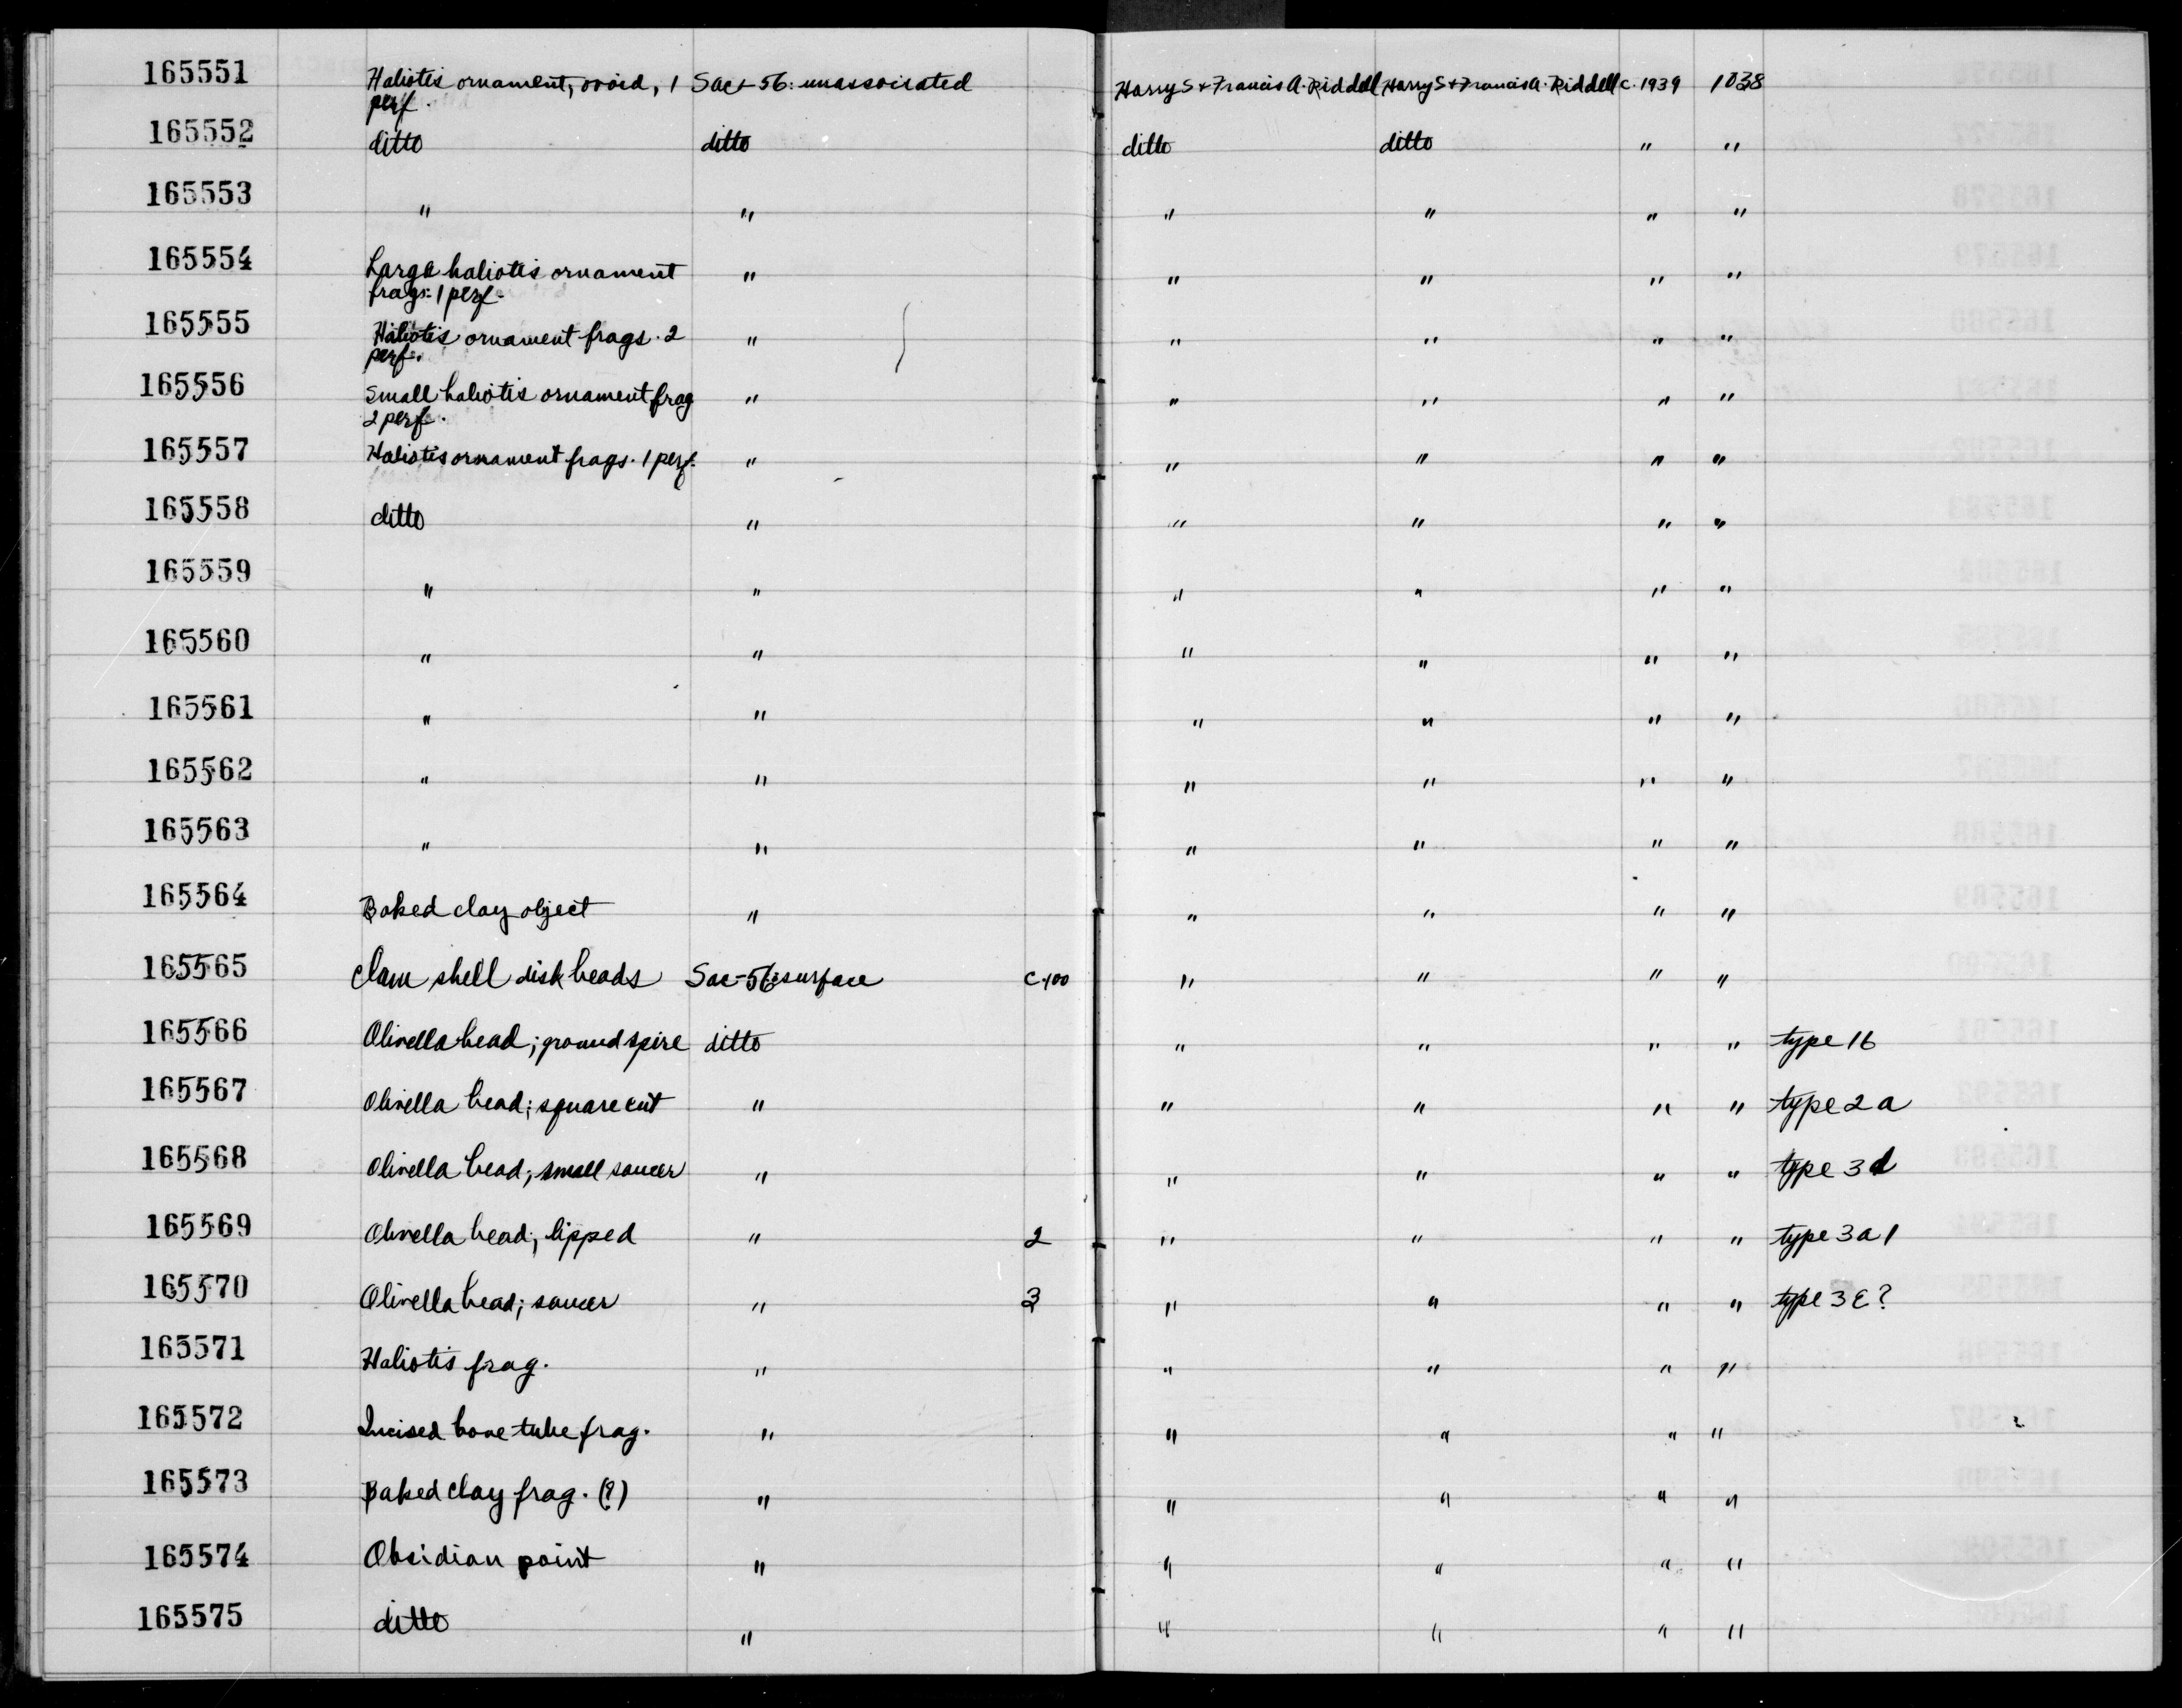 165551 Haliotis ornament, ovoid, 1 Sac-56: unassociated Harry S + Francis A. Riddell Harry S + Francis A. Riddell c. 1939 1038
perf.
165552 ditto ditto ditto ditto " "
165553 " " " " " "
165554 Large haliotis ornament " " " " "
frags. 1 perf.
165555 Haliotis ornament frags. 2 " " " " "
perf.
165556 Small haliotis ornament frag " " " " "
2 perf.
165557 Haliotis ornament frags. 1 perf. " " " " "
165558 ditto " " " " "
165559 " " " " " "
165560 " " " " " "
165561 " " " " " "
165562 " " " " " "
165563 " " " " " "
165564 Baked clay object " " " " "
165565 Clam shell disk beads Sac-56: surface c.100 " " " "
165566 Olivella bead; ground spire ditto " " " " type 1b
165567 Olivella bead; square cut " " " " " type 2a
165568 Olivella bead; small saucer " " " " " type 3d
165569 Olivella bead; lipped " 2 " " " " type 3a1
165570 Olivella bead; saucer " 3 " " " " type 3E?
165571 Haliotis frag. " " " " "
165572 Incised bone tube frag. " " " " "
165573 Baked clay frag. (?) " " " " "
165574 Obsidian point " " " " "
165575 ditto " " " " "